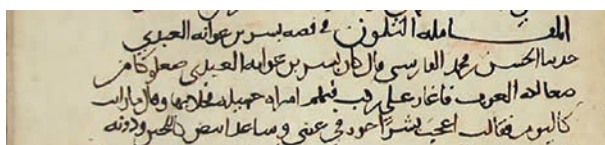 المقامة الثلثون في قصه بشر بن عوانه العبدي
حدثنا الحسن بن محمد الفارسي قال كان بشر بن عوانه العبدي صعلوكا من
صعاليك العرب فاغار على ركب فيهم امراه جميله فخلا بها وقال ما رايت
كاليوم فقالت اعجب بشرا حور في عيني وساعد ابيض كاللجين ودونه